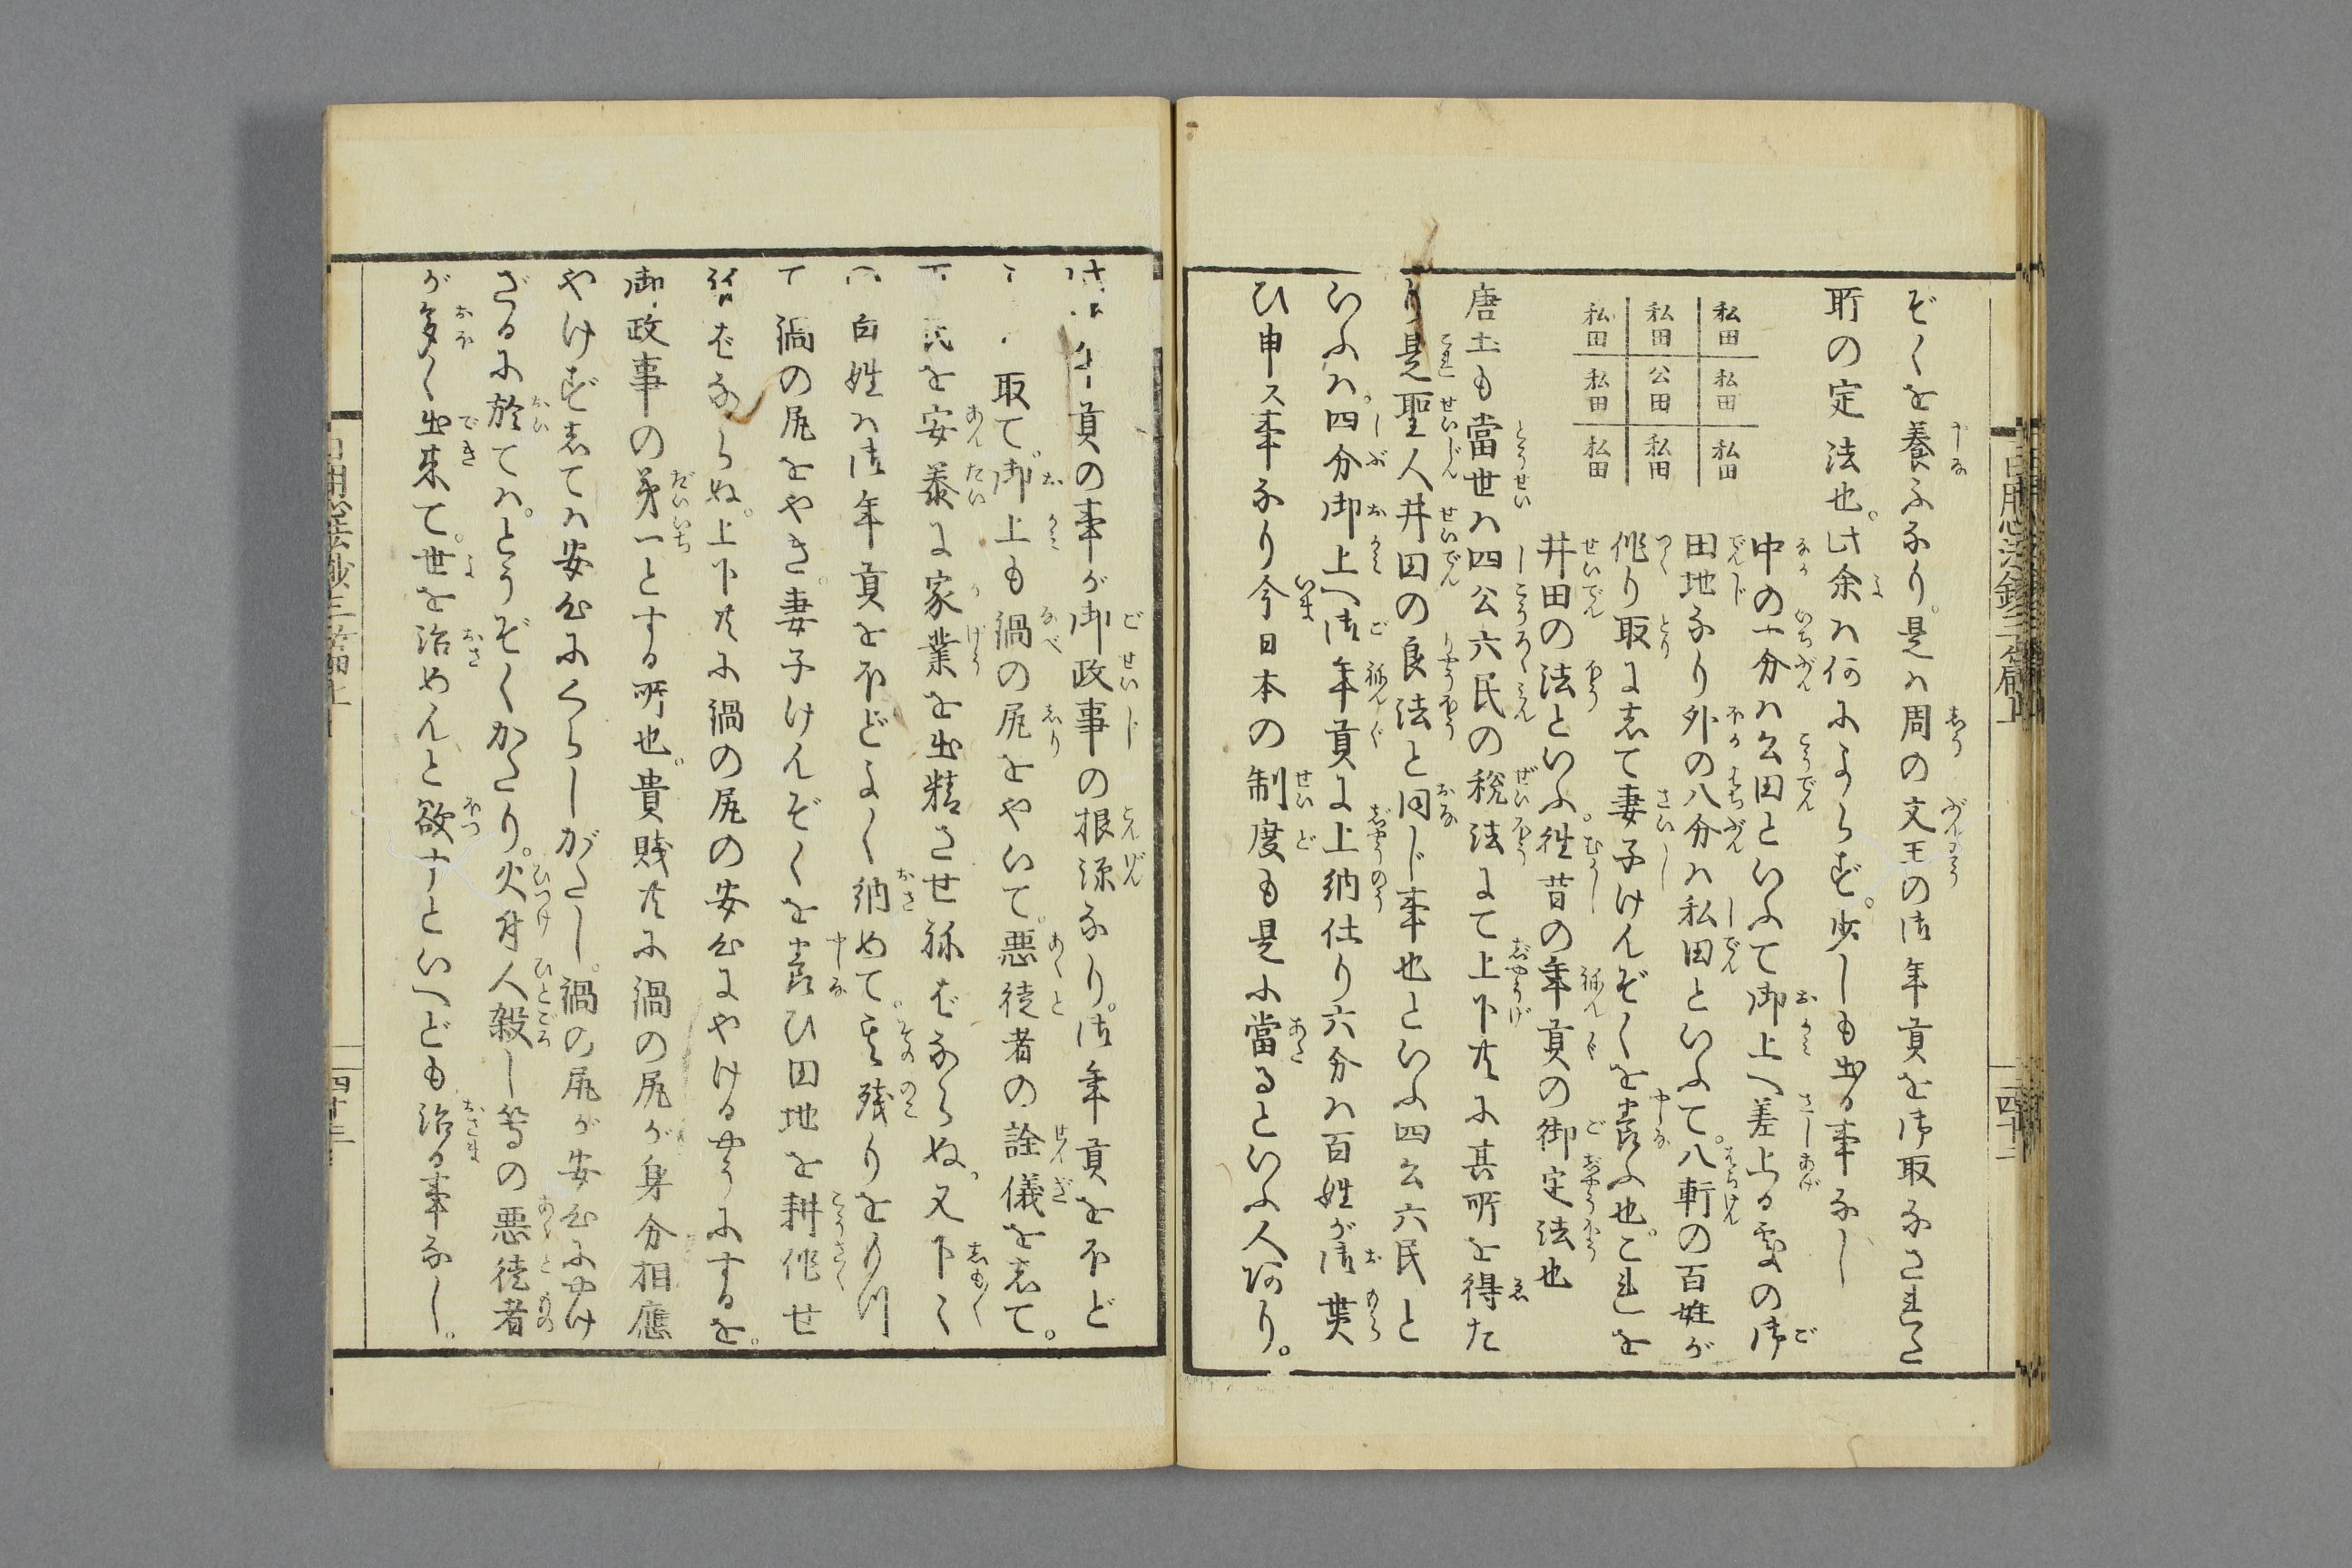 ぞくを養ふなり。是ハ周の文王の御年貢を御取なされた
所の定法也。此余ハ何によらず。少しも出る事なし
私田 私田 私田
私田 公田 私田
私田 私田 私田
中の一分ハ公田といふて御上へ差上る処の御
田地なり外の八分ハ私田といふて。八軒の百姓が
作り取にして妻子けんぞくを養ふ也。これを
井田の法といふ。往昔の年貢の御定法也
唐土も當世ハ四公六民の税法にて上下共に其所を得た
り是聖人井田の良法と同じ事也といふ四公六民と
いふハ。四分御上へ御年貢に上納仕り六分ハ百姓が御貰
ひ申ス事なり今日本の制度も是に當るといふ人あり。
年貢の事が御政事の根源なり。御年貢をほど
取て。御上も鍋の尻をやいて。悪徒者の詮儀をして。
民を安泰に家業を出精させねばならぬ。又下〻
百姓ハ御年貢をほどよく納めて。其残りをもつ
て鍋の尻をやき。妻子けんぞくを養ひ田地を耕作せ
ねばならぬ。上下共に鍋の尻の安心にやけるやうにするを。
御政事の第一とする所也。貴賎共に鍋の尻が身分相應
やけずしてハ安心にくらしがたし。鍋の尻が安心にやけ
ざるに於てハ。とうぞくかたり。火付人殺し等の悪徒者
が多く出来て。世を治めんと欲すといへども治る事なし。
四十二
四十三